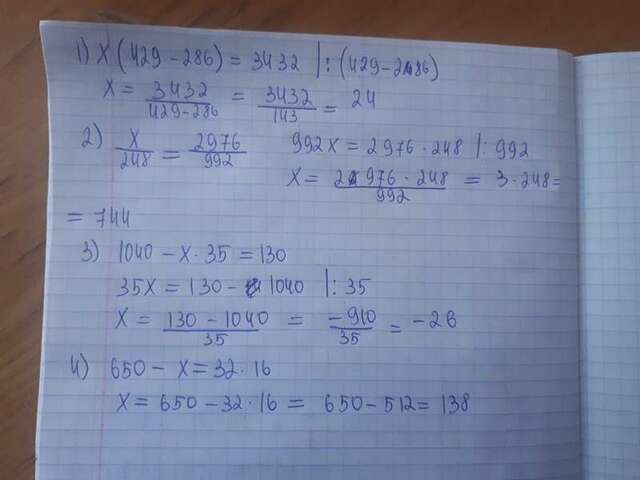 1) x(429-286) = 3432 |:(429-286)
x = 3432/(429-286) = 3432/143 = 24
2) x/248 = 2976/992 992x = 2976·248 |:992
x = 2976·248/992 = 3·248=
= 744
3) 1040 - x·35 = 130
35x = 130 - 1040 |:35
x = (130-1040)/35 = -910/35 = -26
4) 650 - x = 32·16
x = 650-32·16 = 650-512 = 138